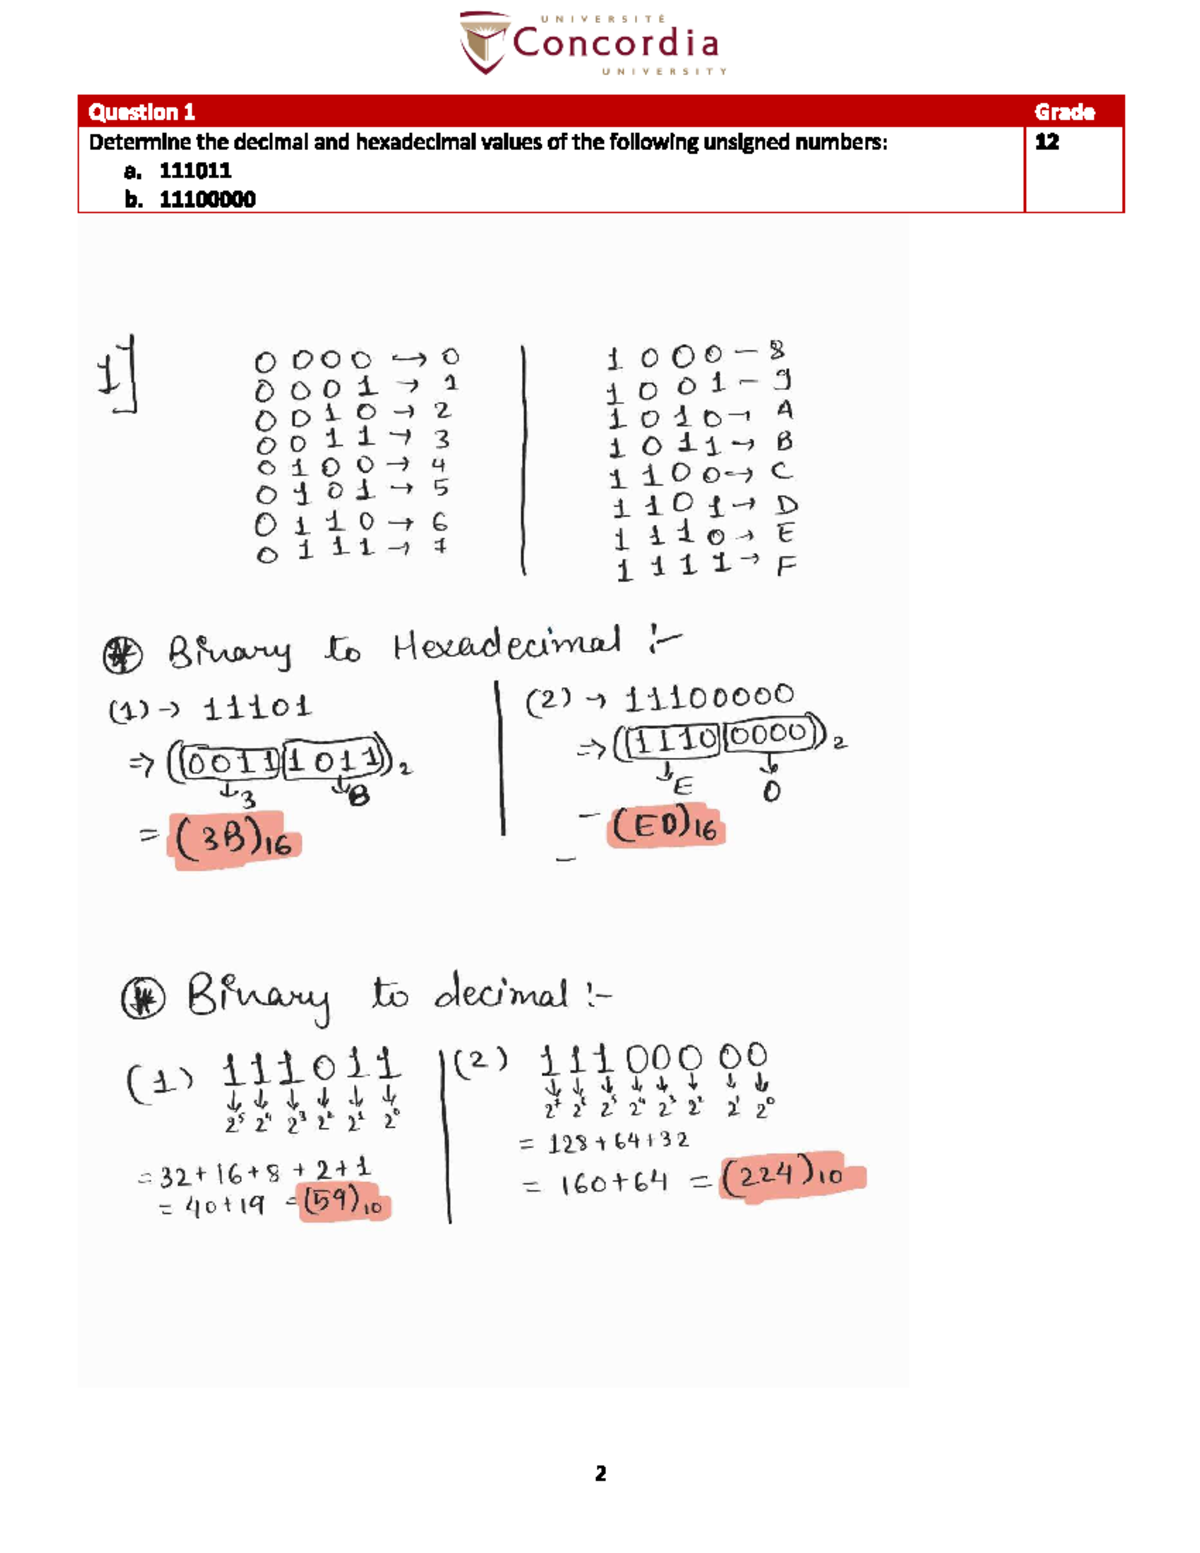 UNIVERSITÉ
Concordia
UNIVERSITY
Question 1 Grade
Determine the decimal and hexadecimal values of the following unsigned numbers: 12
a. 111011
b. 11100000
1]
0 0 0 0 → 0
0 0 0 1 → 1
0 0 1 0 → 2
0 0 1 1 → 3
0 1 0 0 → 4
0 1 0 1 → 5
0 1 1 0 → 6
0 1 1 1 → 7
1 0 0 0 – 8
1 0 0 1 – 9
1 0 1 0 → A
1 0 1 1 → B
1 1 0 0 → C
1 1 0 1 → D
1 1 1 0 → E
1 1 1 1 → F
* Binary to Hexadecimal :-
(1) → 11101
⇒ ((0011)(1011))₂
↓3 ↓B
= (3B)₁₆
(2) → 11100000
⇒ ((1110)(0000))₂
↓E ↓0
– (E0)₁₆
–
* Binary to decimal :-
(1) 111011
↓ ↓ ↓ ↓ ↓ ↓
2⁵ 2⁴ 2³ 2² 2¹ 2⁰
= 32 + 16 + 8 + 2 + 1
= 40 + 19 = (59)₁₀
(2) 11100000
↓ ↓ ↓ ↓ ↓ ↓ ↓ ↓
2⁷ 2⁶ 2⁵ 2⁴ 2³ 2² 2¹ 2⁰
= 128 + 64 + 32
= 160 + 64 = (224)₁₀
2